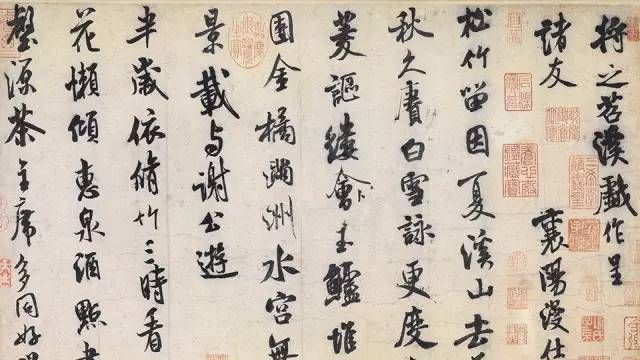 將之苕溪戲作呈
諸友 襄陽漫仕
松竹留因夏溪山去
秋久賡白雪詠更度
菱謳縷會玉鱸堆
團金橘滿洲水宮無
景載与謝公遊
半歲依脩竹三時看
花懶傾惠泉酒點
壑源茶主席多同好